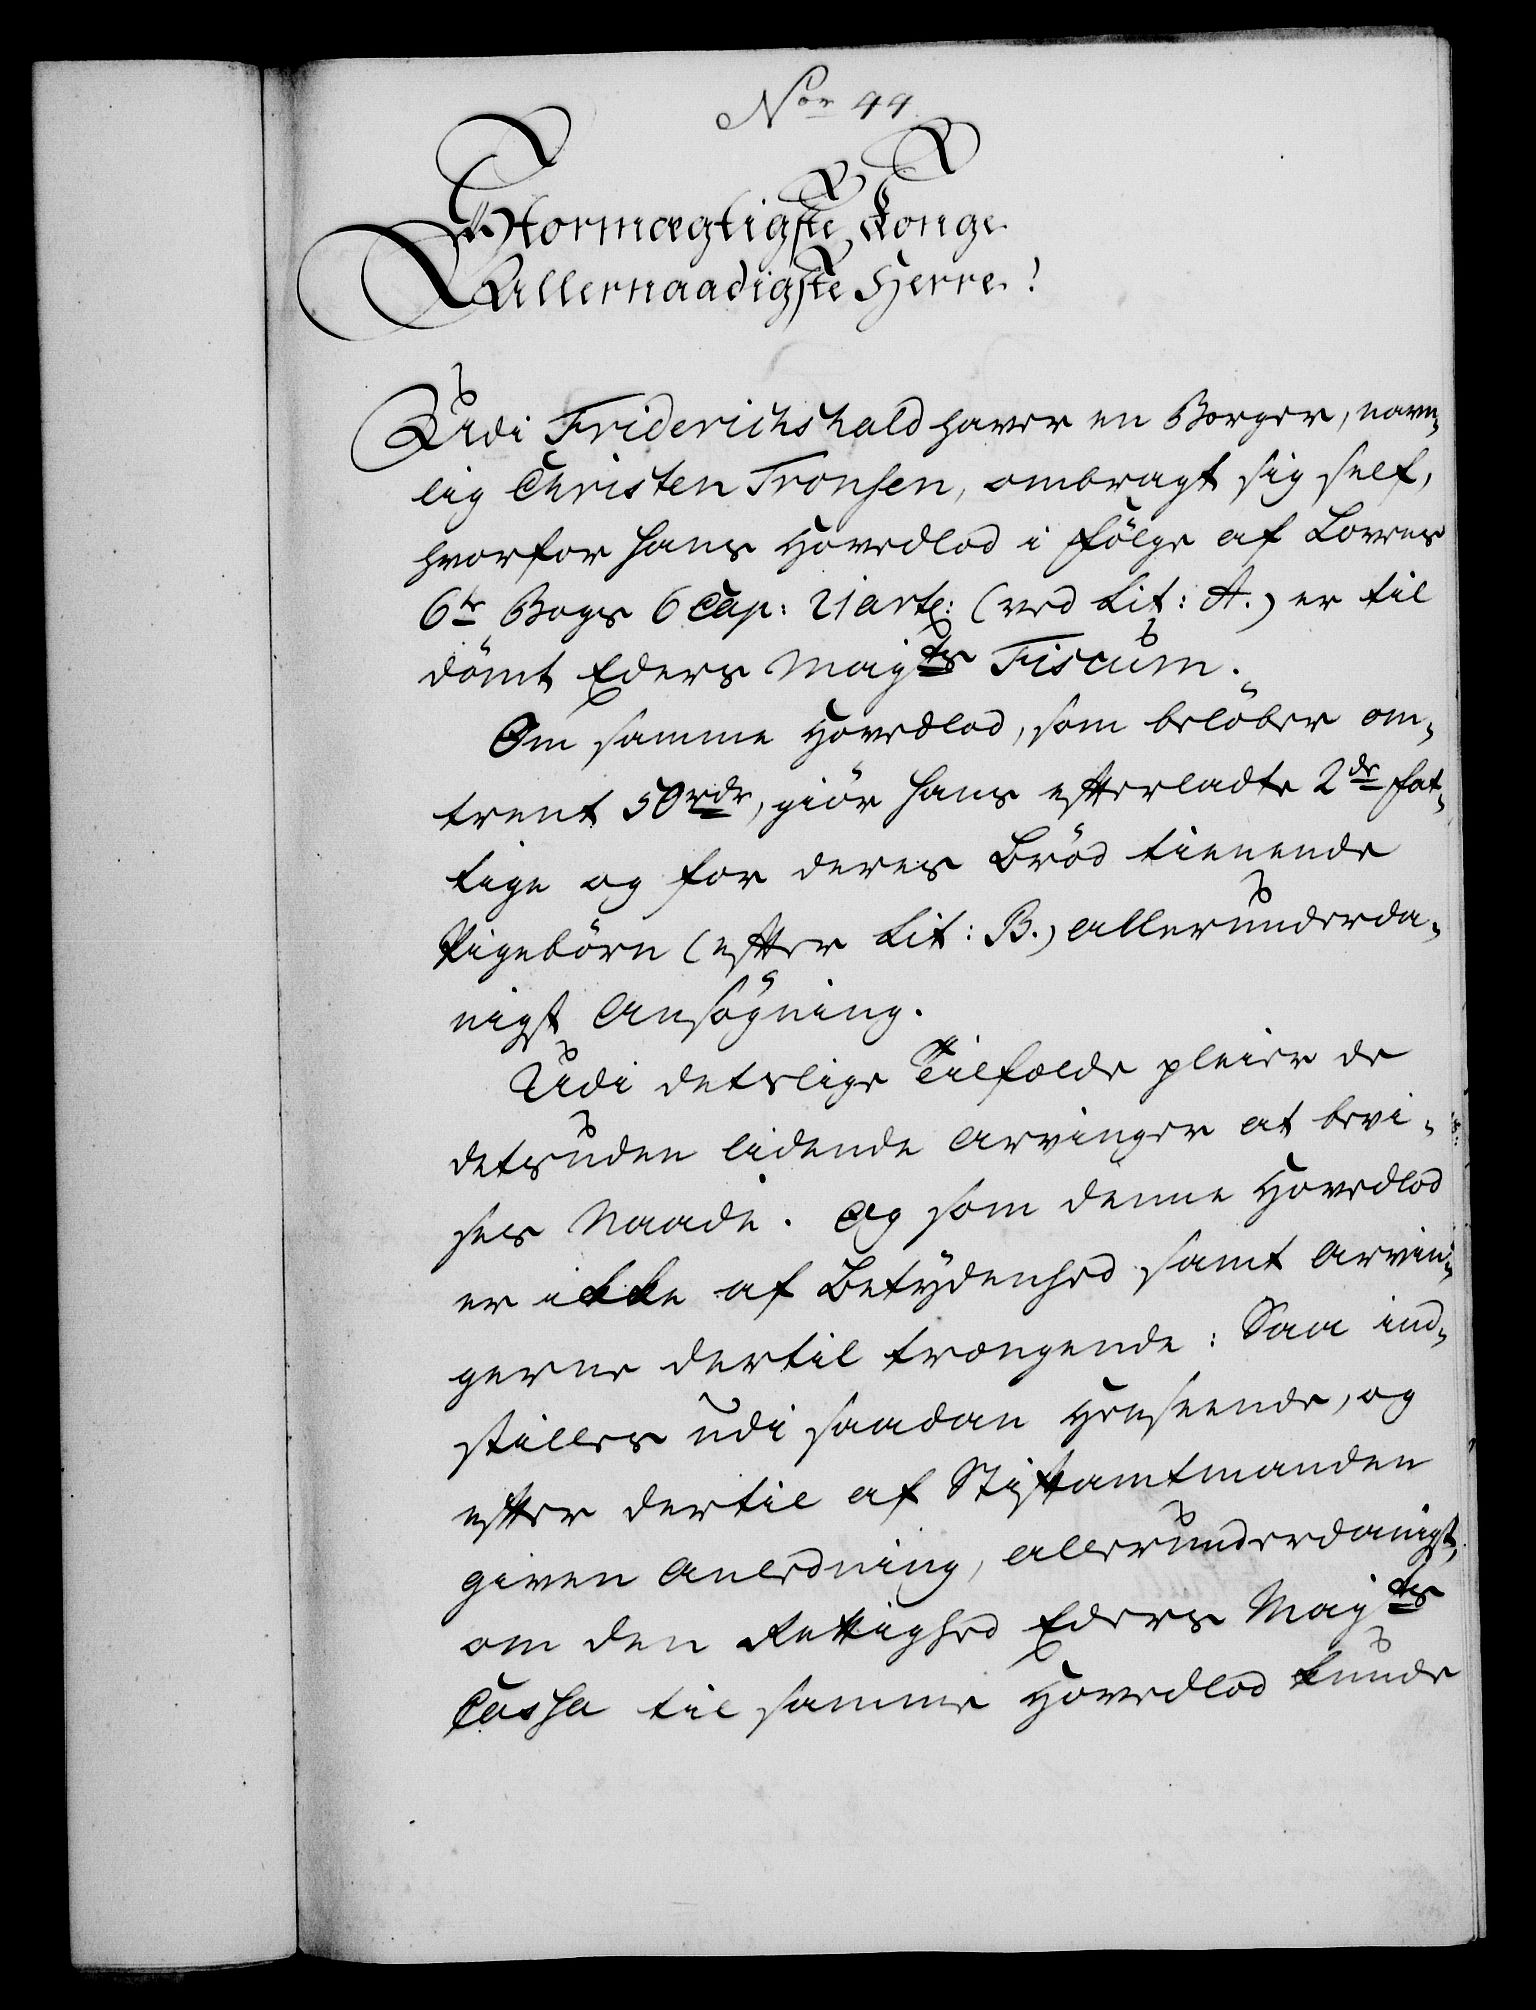 Nor 44.
Stormægtigste Konge
Allernaadigste Herre!
Udi Friderichshald haver en Borger, navn-
lig Christen Tronsen, ombragt sig self,
hvorfor hans Hovedlod i følge af Lovens
6te Bogs 6 Cap: 21 art: (ved Lit: A.) er til
dømt Eders Majts Fiscum.
Om samme Hovedlod, som beløber om-
trent 50rdr, giør hans efterladte 2de fat-
tige og for deres Brød tienende
Pigebørn (efter Lit: B.) allerunderda-
nigst Ansøgning.
Udi detslige Tilfælde pleier de
detsuden lidende Arvinger at bevi-
ses Naade. Og som denne Hovedlod
er ikke af Betydenhed samt Arvin-
gerne dertil trængende: Saa ind-
stilles udi saadan Henseende, og
efter dertil af Stiftamtmanden
given Anledning, allerunderdanigst,
om den Rettighed Eders Majts
Cassa til samme Hovedlod kunde